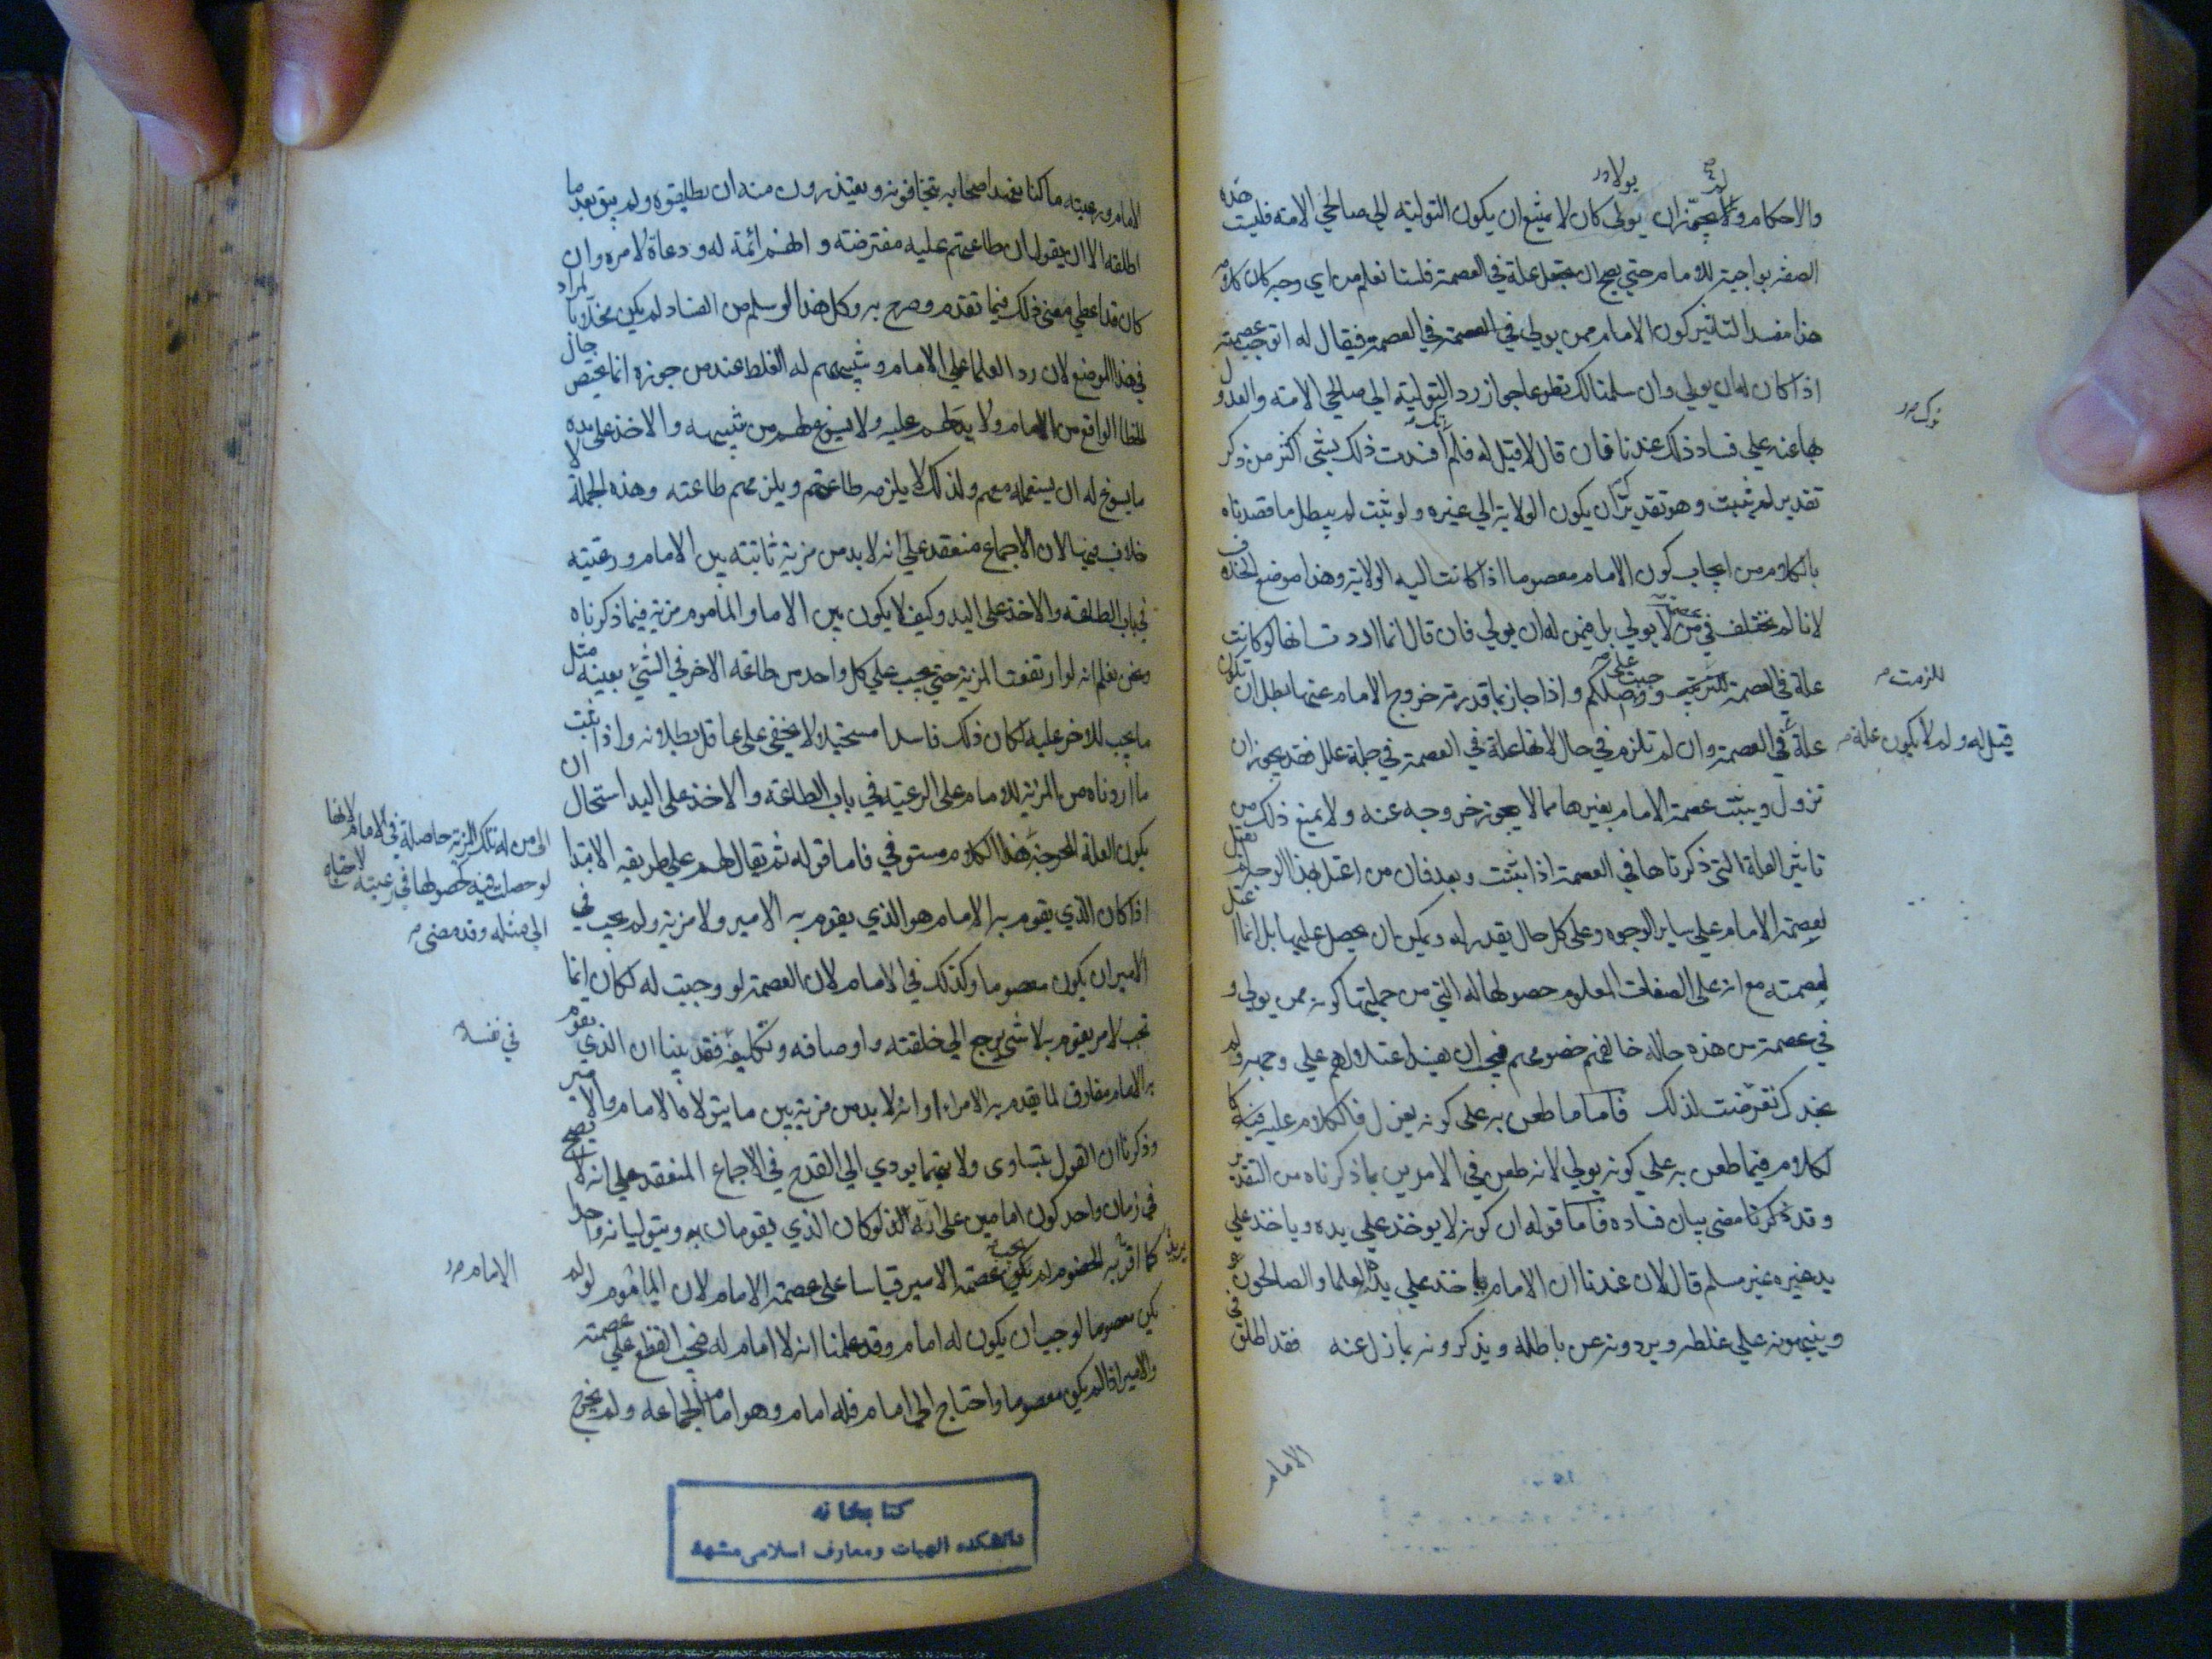 والاحكام ولم يجز ان يولى كان لا يمتنع ان يكون التولية الى صالحي الامة فليت هذه
الصفة بواجبة للامام حتى يصح ان تجعل علة في العصمة فلسنا نعلم من اي وجه كان كلامه
هذا مفسدا لتاثير كون الامام ممن يولي في العصمة فيقال له اتوجب عصمته
اذا كان له ان يولي وان سلمنا لك تطوعا جواز رد التولية الى صالحي الامة والعدول
بها عنه على فساد ذلك عندنا فان قال لا قيل له فلم افسدت ذلك بشئ اكثر من ذكر
تقدير لم يثبت وهو تقديرك ان يكون الولاية الى غيره ولو ثبت لم يبطل ما قصدناه
بالكلام من ايجاب كون الامام معصوما اذا كانت اليه الولاية وهذا موضع الخلاف
لانا لم نختلف في عصمة من لا يولي بل فيمن له ان يولي فان قال انما اردت انها لو كانت
علة في العصمة للزمت ووجبت على كل حال واذا جاز بما قدرته خروج الامام عنها بطل ان تكون
علة في العصمة وان لم تلزم في حال لانها علة في العصمة في جملة علل فقد يجوز ان
تزول ويثبت عصمة الامام بغيرها مما لا يجوز خروجه عنه ولا يمنع ذلك من
تاثير العلة التي ذكرناها في العصمة اذا ثبتت وبعد فان من اعتل بهذا الوجه لم يعتل
لعصمة الامام على ساير الوجوه وعلى كل حال يقدر له ويمكن ان يحصل عليها بل انما اعتل
لعصمته مع انه على الصفات المعلوم حصولها له التي من جملتها كونه ممن يولي و
في عصمة من هذه حاله خالفهم خصومهم فيجب ان يفسد اعتلالهم على وجهه ولم
نجدك تعرضت لذلك فاما ما طعن به على كونه يعزل فالكلام عليه فيه كا
لكلام فيما طعن به على كونه يولي لانه طعن في الامرين بما ذكرناه من التقدير
وقد ذكرنا مضى بيان فساده فاما قوله ان كونه لا يوخذ على يده وياخذ على
يد غيره غير مسلم قال لان عندنا ان الامام ياخذ على يده العلما والصالحون
وينبهونه على غلطه ويردونه عن باطله ويذكرونه بما زل عنه فقد اطلق في
الامام
ترك
للزمت
قيل له ولم لا يكون علة
الامام ورعيته ما كنا نجد اصحابه يتخافونه ويعتذرون منه ان يطلقوه ولم يبق بعد ما
اطلقه الا ان يقول ان طاعتهم عليه مفترضة وانهم ائمة له ودعاة لامره وان
كان قد اعطي معنى ذلك فيما تقدم وصرح به وكل هذا لو سلم من الفساد لم يكن مخلا بالمراد
في هذا الموضع لان رد العلما على الامام وتنبيههم له الغلط عند من جوزه انما يختص حال
الخطا الواقع من الامام ولا يد لهم عليه ولا يسوغ لهم من تنبيهه والاخذ على يده
ما يسوغ له ان يستعمله معهم ولذلك لا يلزمه طاعتهم ويلزمهم طاعته وهذه الجملة لا
خلاف فيها لان الاجماع منعقد على انه لا بد من مزية ثابتة بين الامام ورعيته
في باب الطاعة والاخذ على اليد وكيف لا يكون بين الامام والماموم مزية فيما ذكرناه
ونحن نعلم انه لو ارتفعت المزية حتى يجب على كل واحد من طاعة الاخر في الشئ بعينه مثل
ما يجب للاخر عليه لكان ذلك فاسدا مستحيلا ولا يخفى على عاقل بطلانه واذا ثبت
ما اردناه من المزية للامام على الرعية في باب الطاعة والاخذ على اليد استحال ان
يكون العلة المحوجة هذا الكلام مستوفي فاما قوله ثم يقال لهم على طريقه الابتدا
اذا كان الذي يقوم به الامام هو الذي يقوم به الامير ولا مزية ولم يجب في
الامير ان يكون معصوما وكذلك في الامام لان العصمة لو وجبت له لكان انما
تجب لامر يقوم به لا شئ يرجع الى خلقته واوصافه وتكليفه فقد بينا ان الذي يقوم
به الامام مفارق لما يقوم به الامراء وانه لا بد من مزية بين ما يتولاه الامام والامير
وذكرنا ان القول بتساوي ولايتهما يودي الى القدح في الاجماع المنعقد على انه لا يصح
في زمان واحد كون امامين على انه لو كان الذي يقومان به ويتوليانه واحدا
كما اقربه الخصوم لم يجب عصمة الامير قياسا على عصمة الامام لان الماموم لو لم
يكن معصوما لوجب ان يكون له امام وقد علمنا انه لا امام له فيجب القطع على عصمته
والامير اذا لم يكن معصوما واحتاج الى امام فله امام وهو امام الجماعة ولم يخرج
الى من له تلك المزية حاصلة في الامام لانها
لو حصلت فيه لحصولها في رعيته لاحتاج
الى مثله وقد مضى
في نفسه
الامام
كتابخانه
دانشكده الهيات ومعارف اسلامى مشهد